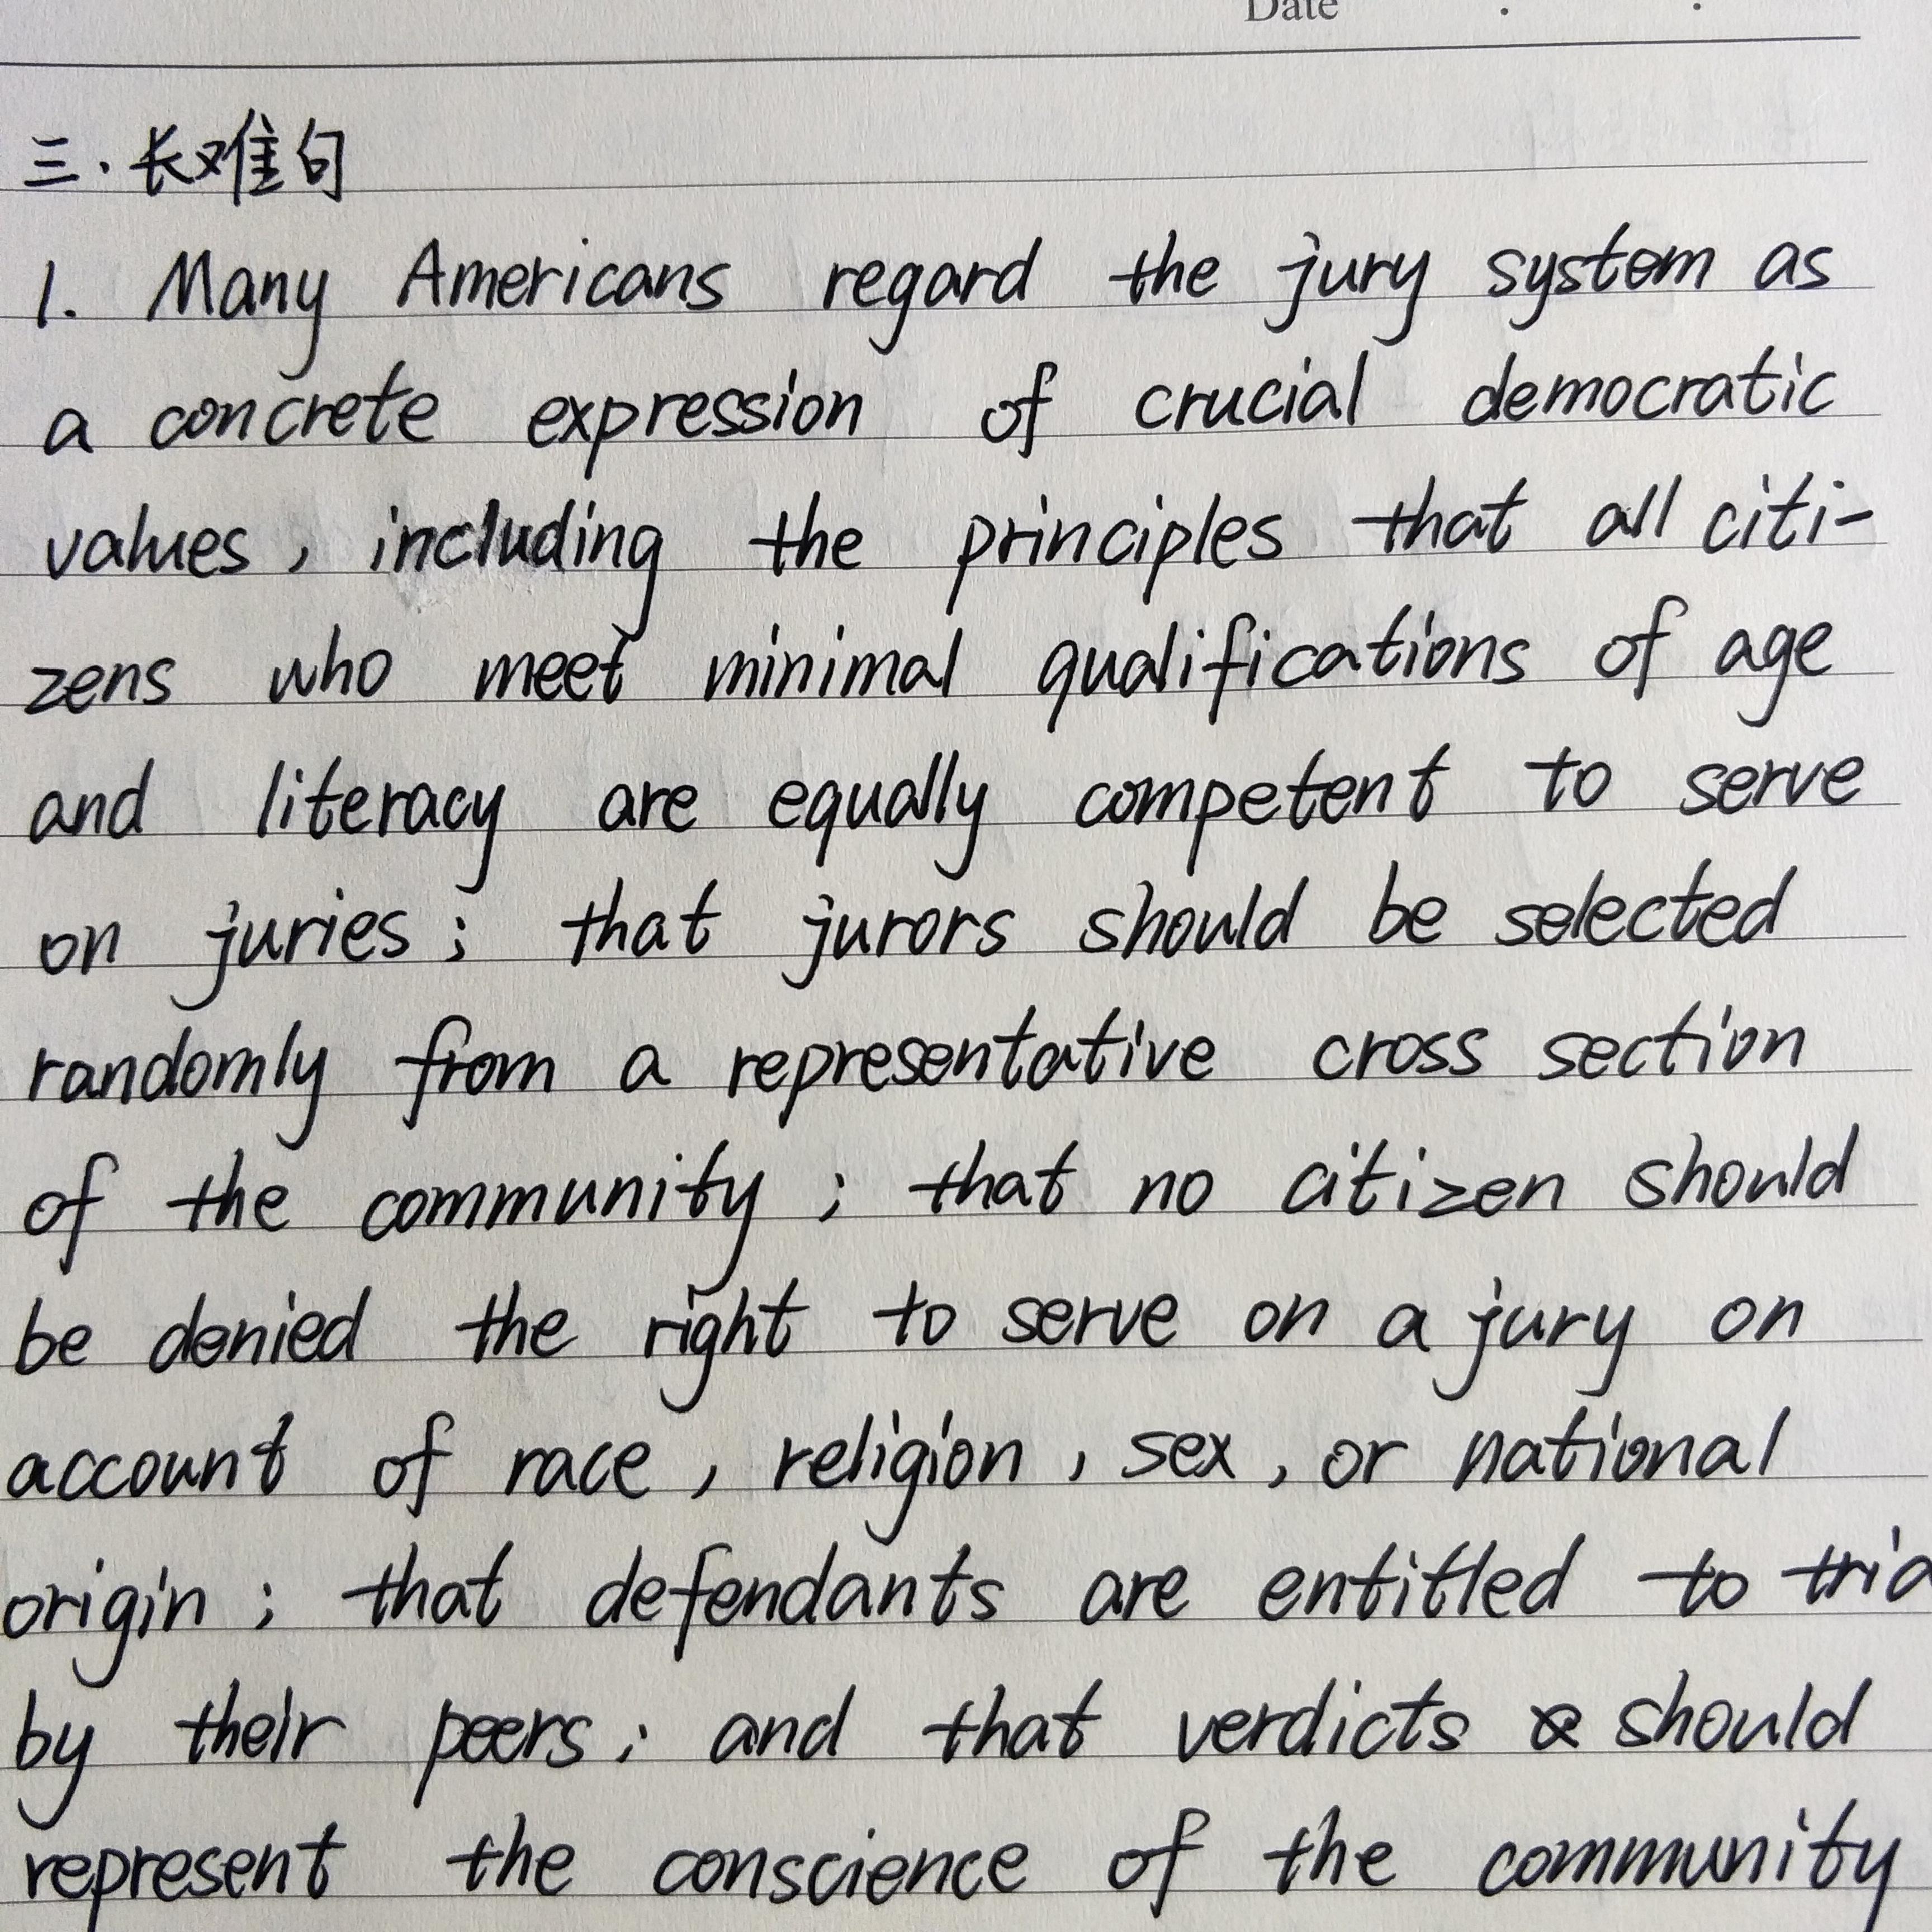 Date
三.长难句
1. Many Americans regard the jury system as
a concrete expression of crucial democratic
values, including the principles that all citi-
zens who meet minimal qualifications of age
and literacy are equally competent to serve
on juries; that jurors should be selected
randomly from a representative cross section
of the community; that no citizen should
be denied the right to serve on a jury on
account of race, religion, sex, or national
origin; that defendants are entitled to tria
by their peers; and that verdicts should
represent the conscience of the community